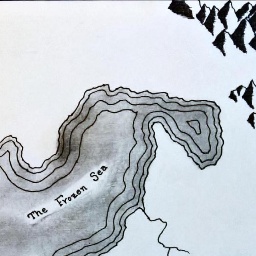 The Frozen Sea